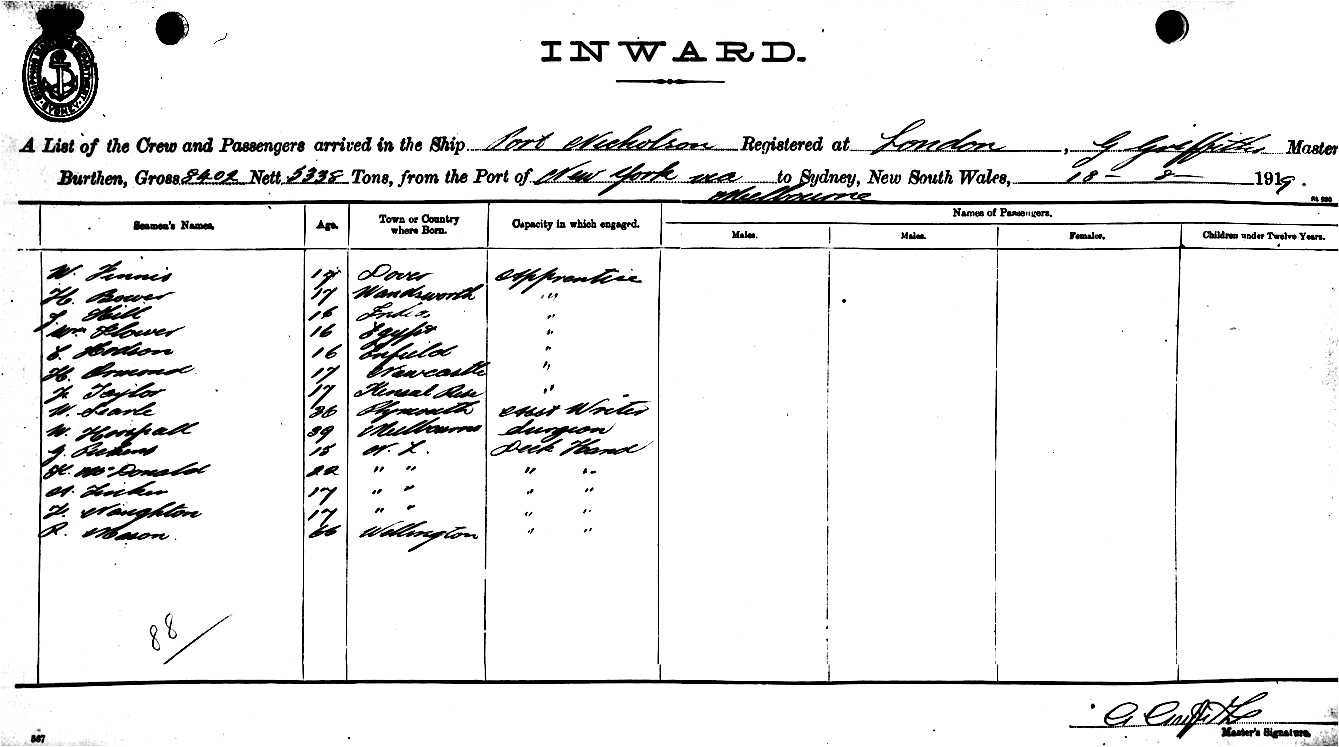 SHIPPING MASTER'S DEPARTMENT SYDNEY
INWARD.
A List of the Crew and Passengers arrived in the Ship Port Nicholson Registered at London, G Griffiths Master
Burthen, Gross 8402 Nett 5338 Tons, from the Port of New York via Melbourne to Sydney, New South Wales, 18-8- 1919.
Seamen's Names. Age. Town or Country where Born. Capacity in which engaged. Names of Passengers.
Males. Males. Females. Children under Twelve Years.
W. Finnis 17 Dover Apprentice
H. Bower 17 Wandsworth "
J. Hill 16 India "
Wm Flower 16 Egypt "
E. Hodson 16 Enfield "
H. Ormond 17 Newcastle "
F. Taylor 17 Kensal Rise "
W. Searle 36 Plymouth Asst Writer
W. 39 Melbourne Surgeon
G. 15 N. Z. Deck Hand
K. McDonald 22 " " " "
A. 17 " " " "
F. Naughton 17 " " " "
R. Mason 66 Wellington " "
88
G Griffiths
Master's Signature.
567